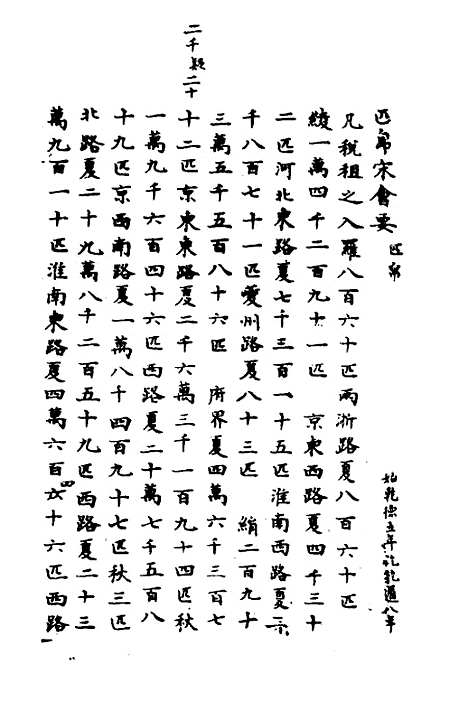 匹帛宋會要 匹帛
始乾德五年訖乾道八年
凡稅租之入羅八百六十匹兩浙路夏八百六十匹
綾一萬四千二百九十一匹 京東西路夏四千三十
二匹河北東路夏七千三百一十五匹淮南西路夏二
千八百七十一匹夔州路夏八十三匹 絹二百九十
三萬五千五百八十六匹 府界夏四萬六千三百七
十二匹京東東路夏二千六萬三千一百九十四匹秋
一萬九千六百四十六匹西路夏二十萬七千五百八
十九匹京西南路夏一萬八千四百九十七匹秋三匹
北路夏二十九萬八千二百五十九匹西路夏二十三
萬九百一十匹淮南東路夏四萬六百六十六匹西路
二千疑二十